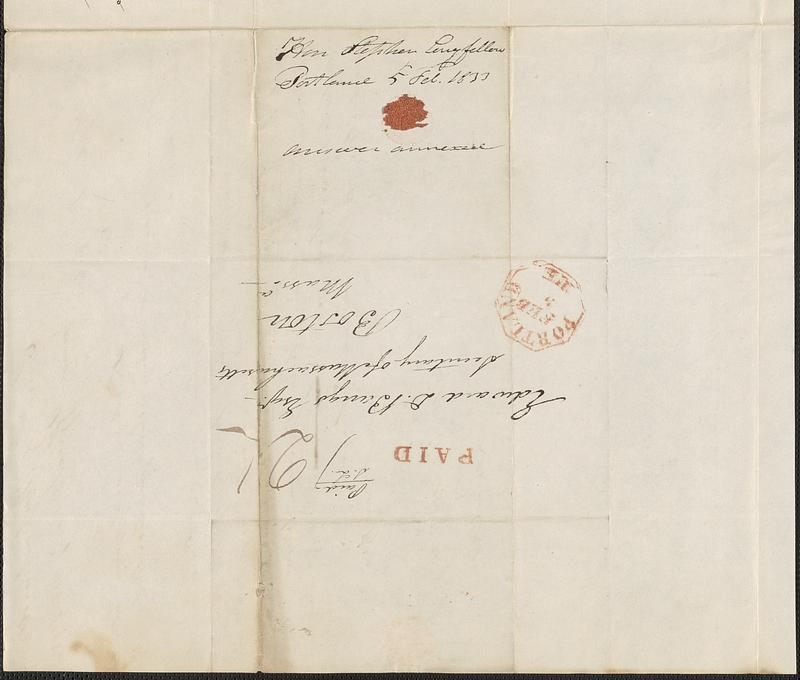 Hon Stephen Longfellow
Portland 5 Feb. 1833
answer annexed
PORTLAND
FEB
5
ME
PAID
Paid
Edward D. Bangs Esqr.
Secretary of Massachusetts
Boston
Mass.